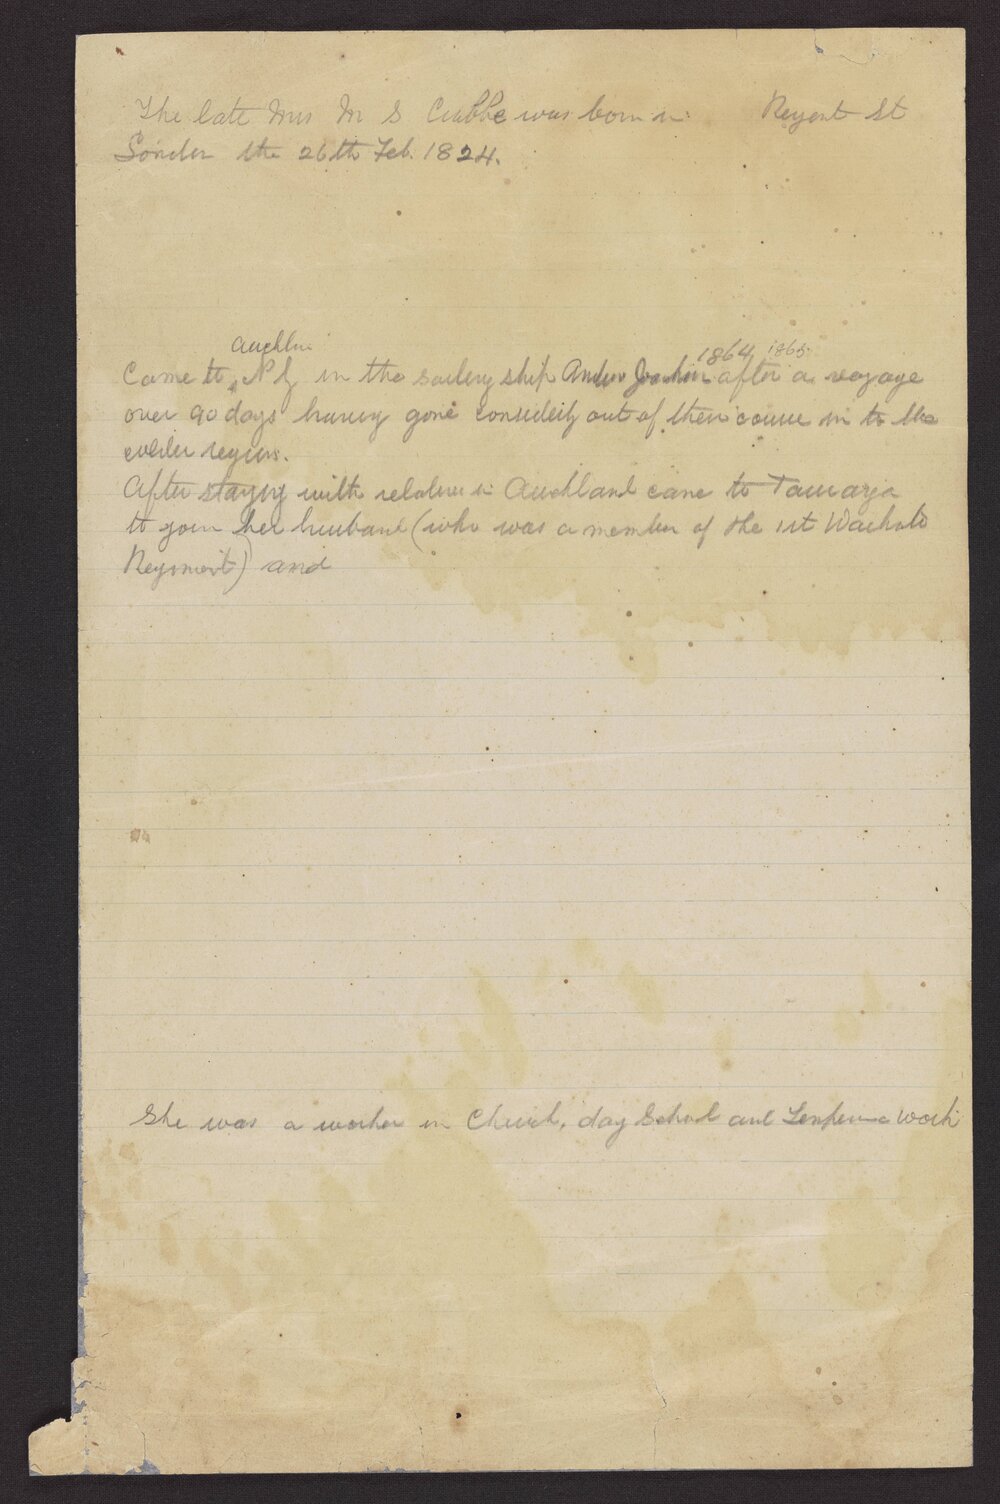 The late Mrs M S Crabbe was born in Regent St
London the 26th Feb. 1824.
Auckland 1864 1865
Came to N Z in the sailing ship after a voyage
over 90 days having gone considerbly out of their course in to the
colder regions.
After staying with relatives in Auckland came to Tauranga
to join her husband (who was a member of the 1st Waikato
Regiment) and
She was a worker in Church, day School and Temperance work